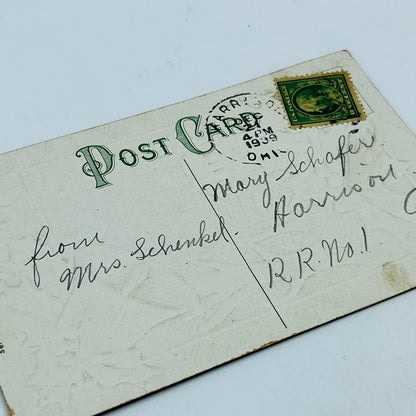 POST CARD
HARRISON
4 PM
1909
OHIO
Mary Schafer
Harrison
R.R. No. 1.
from
Mrs. Schenkel.